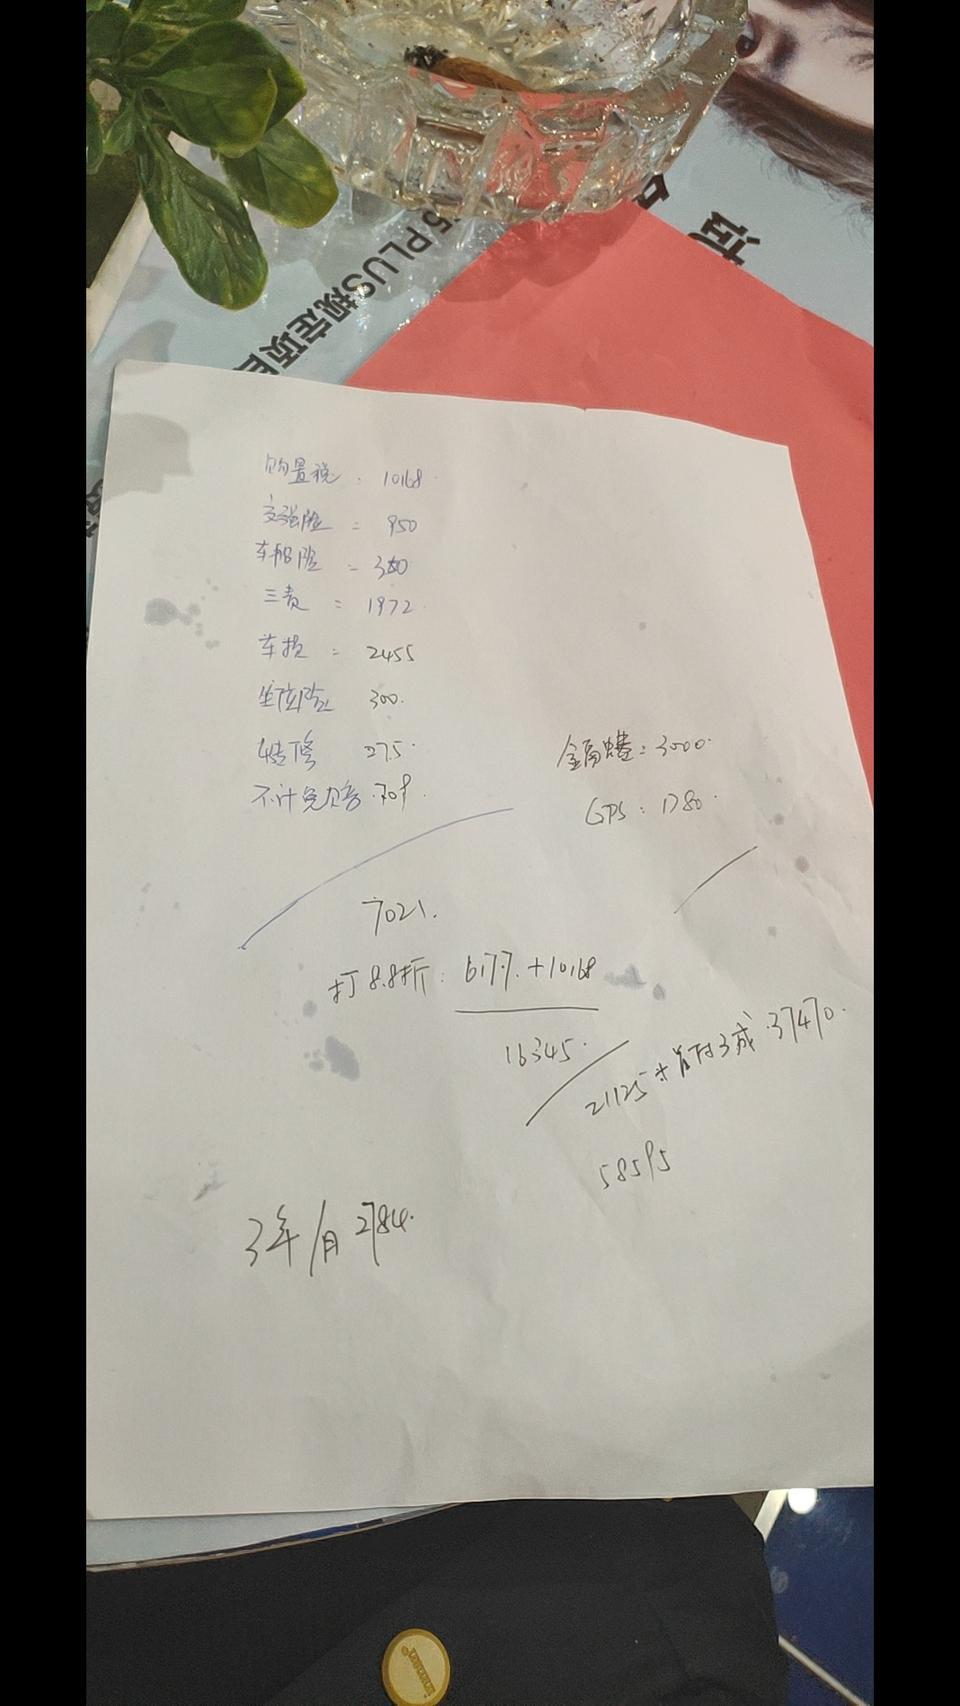 5 PLUS规定项目
试
购置税：10168
交强险 = 950
车船险 = 360
三责 = 1972
车损 = 2455
座位险 300
专修 275
不计免赔 709
金融费：3000
GPS：1780
7021
打8.8折：6177+10168
16345
21125+首付3成 37470
58595
3年/月 2784